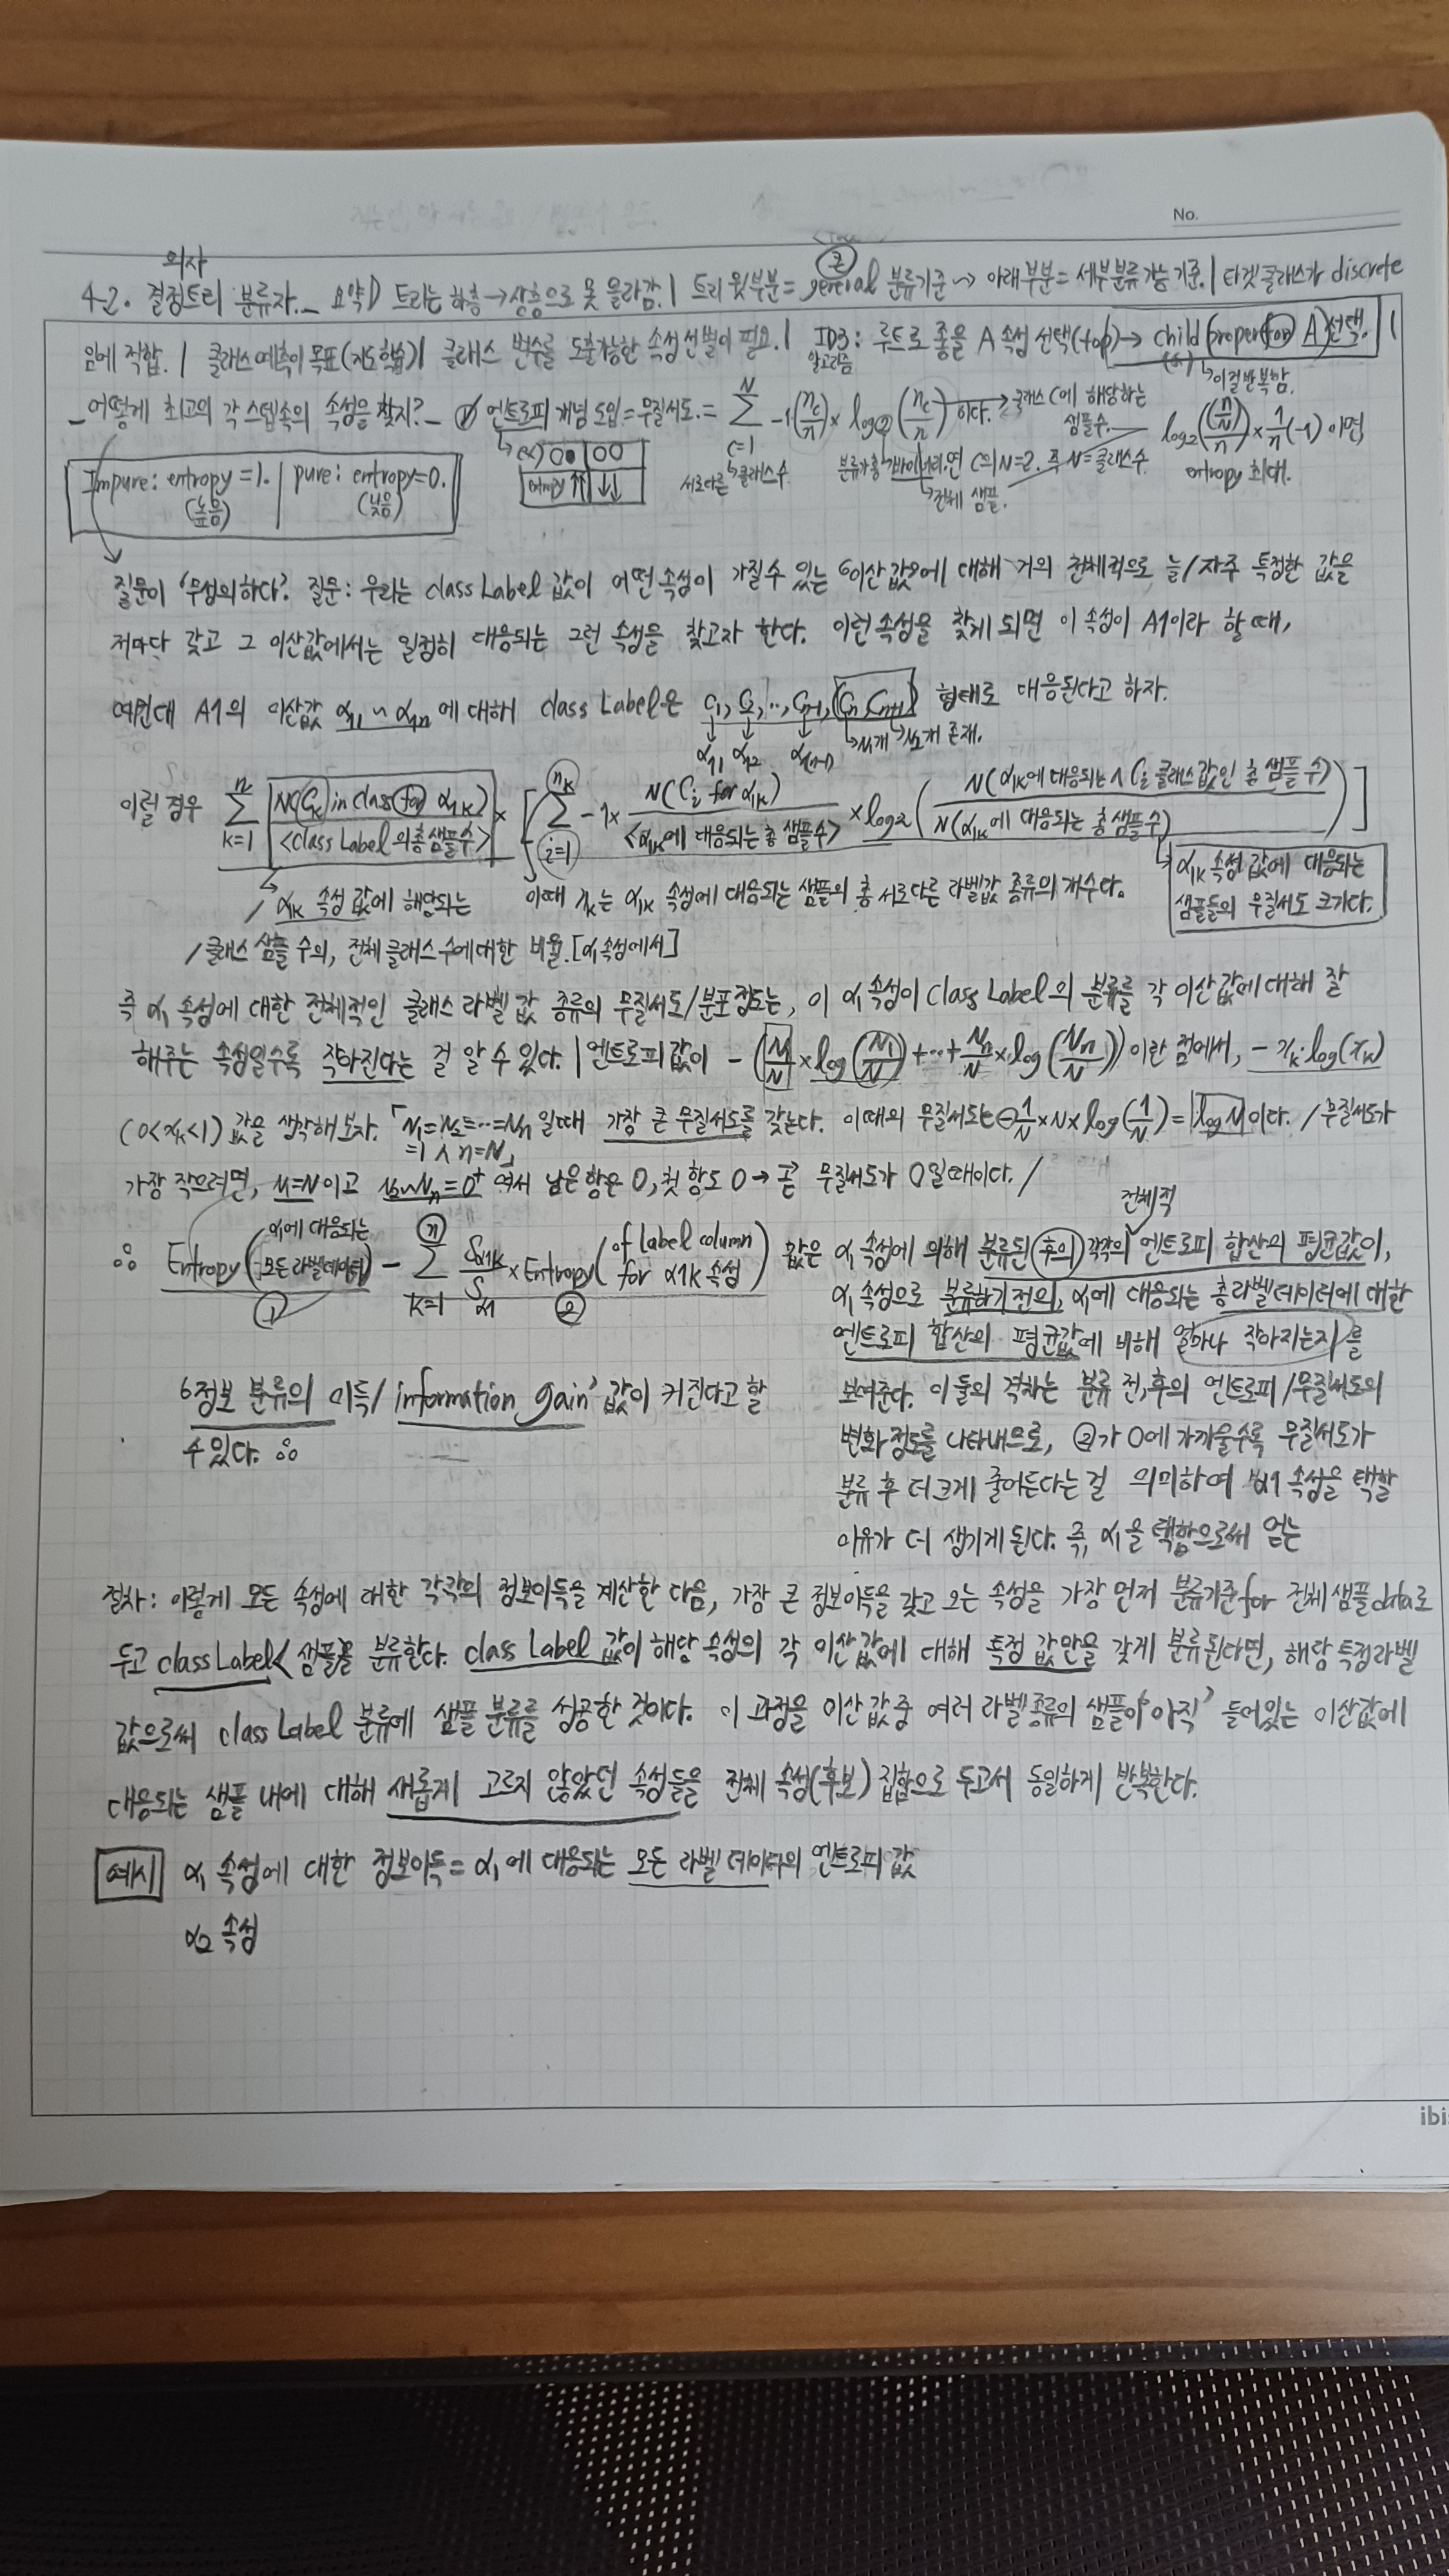 No.
의사
4-2. 결정트리 분류자._ 요약) 트리는 하층→상층으로 못 올라감. | 트리 윗부분 = general 분류기준 → 아래부분 = 세부분류 가능 기준. | 타겟 클래스가 discrete
임에 적합. | 클래스 예측이 목표(지도학습) | 클래스 변수를 도출가능한 속성 선별이 필요. | ID3: 루트로 좋을 A 속성 선택(top) → child (proper for A) 선택. |
알고리즘
이걸 반복함.
_어떻게 최고의 각 스텝속의 속성을 찾지?_ 엔트로피 개념 도입 = 무질서도. = N Σ c=1 -1(nc/n) × log2(nc/n) 이다. → 클래스 C에 해당하는 샘플수.
log2((n/N)/n) × 1/n (-1) 이면, entropy 최대.
서로다른 클래스 수
바이너리면 C의 N=2. 즉 N=클래스 수.
전체 샘플.
Impure: entropy = 1. (높음) | pure: entropy=0. (낮음)
ex) ○● | ○○
entropy ↑↑ | ↓↓
질문: 우리는 class Label 값이 어떤 속성이 가질 수 있는 '이산값'에 대해 거의 전체적으로 늘/자주 특정한 값을
저마다 갖고 그 이산값에서는 일정히 대응되는 그런 속성을 찾고자 한다. 이런 속성을 찾게 되면 이 속성이 A1이라 할 때,
예컨대 A1의 이산값 α11 ~ α1n에 대해 class Label은 C1, C2, ..., Cn-1, (Cn, Cn+1) 형태로 대응된다고 하자.
α11 α12 α1(n-1) 존재.
이럴 경우 n Σ k=1 N(Ck) in class for α1k / <class Label의 총샘플수> × [ nk Σ i=1 -1 × N(Ci for α1k) / <α1k에 대응되는 총 샘플수> × log2( N(α1k에 대응되는 ∧ Ci 클래스 값인 총 샘플 수) / N(α1k에 대응되는 총 샘플수) ) ]
α1k 속성 값에 대응되는
샘플들의 무질서도 크기다.
/ α1k 속성 값에 해당되는 이때 nk는 α1k 속성에 대응되는 샘플의 총 서로다른 라벨값 종류의 개수다.
/ 클래스 샘플 수의, 전체 클래스 수에 대한 비율. [α1속성에서]
즉 α1 속성에 대한 전체적인 클래스 라벨 값 종류의 무질서도/분포정도는, 이 α1 속성이 class Label의 분류를 각 이산값에 대해 잘
해주는 속성일수록 작아진다는 걸 알 수 있다. | 엔트로피 값이 -(N1/N × log(N1/N) +…+ Nn/N × log(Nn/N)) 이란 점에서, -xk·log(xk)
(0<xk<1) 값을 생각해보자. 「N1=N2=…=Nn =1 ∧ n=N」 일때 가장 큰 무질서도를 갖는다. 이때의 무질서도는 -1/N × N × log(1/N) = log N 이다. / 무질서도가
가장 작으려면, N1=N이고 N2~Nn=0+ 여서 남은 항은 0, 첫 항도 0 → 곧 무질서도가 0일 때이다. /
∴ Entropy(α1에 대응되는 모든 라벨데이터) - n Σ k=1 Sα1k/Sα1 × Entropy(of Label column for α1k 속성) 값은 α1 속성에 의해 분류된 (후의) 각각의 전체적 엔트로피 합산의 평균값이,
① ②
α1 속성으로 분류하기 전의, α1에 대응되는 총 라벨 데이터에 대한
엔트로피 합산의 평균값에 비해 얼마나 작아지는지를
보여준다. 이 둘의 격차는 분류 전,후의 엔트로피/무질서도의
변화 정도를 나타내므로, ②가 0에 가까울수록 무질서도가
분류 후 더 크게 줄어든다는 걸 의미하여 α1 속성을 택할
이유가 더 생기게 된다. 즉, α1을 택함으로써 얻는
'정보 분류의 이득/information gain' 값이 커진다고 할
수 있다. ∴
절차: 이렇게 모든 속성에 대한 각각의 정보이득을 계산한 다음, 가장 큰 정보이득을 갖고 오는 속성을 가장 먼저 분류기준 for 전체 샘플 data로
두고 class Label<샘플>을 분류한다. class Label 값이 해당 속성의 각 이산값에 대해 특정 값만을 갖게 분류된다면, 해당 특정라벨
값으로써 class Label 분류에 샘플 분류를 성공한 것이다. 이 과정을 이산값 중 여러 라벨 종류의 샘플이 '아직' 들어있는 이산값에
대응되는 샘플 내에 대해 새롭게 고르지 않았던 속성들을 전체 속성(후보) 집합으로 두고서 동일하게 반복한다.
예시 α1 속성에 대한 정보이득 = α1에 대응되는 모든 라벨 데이터의 엔트로피 값
α2 속성
ibi